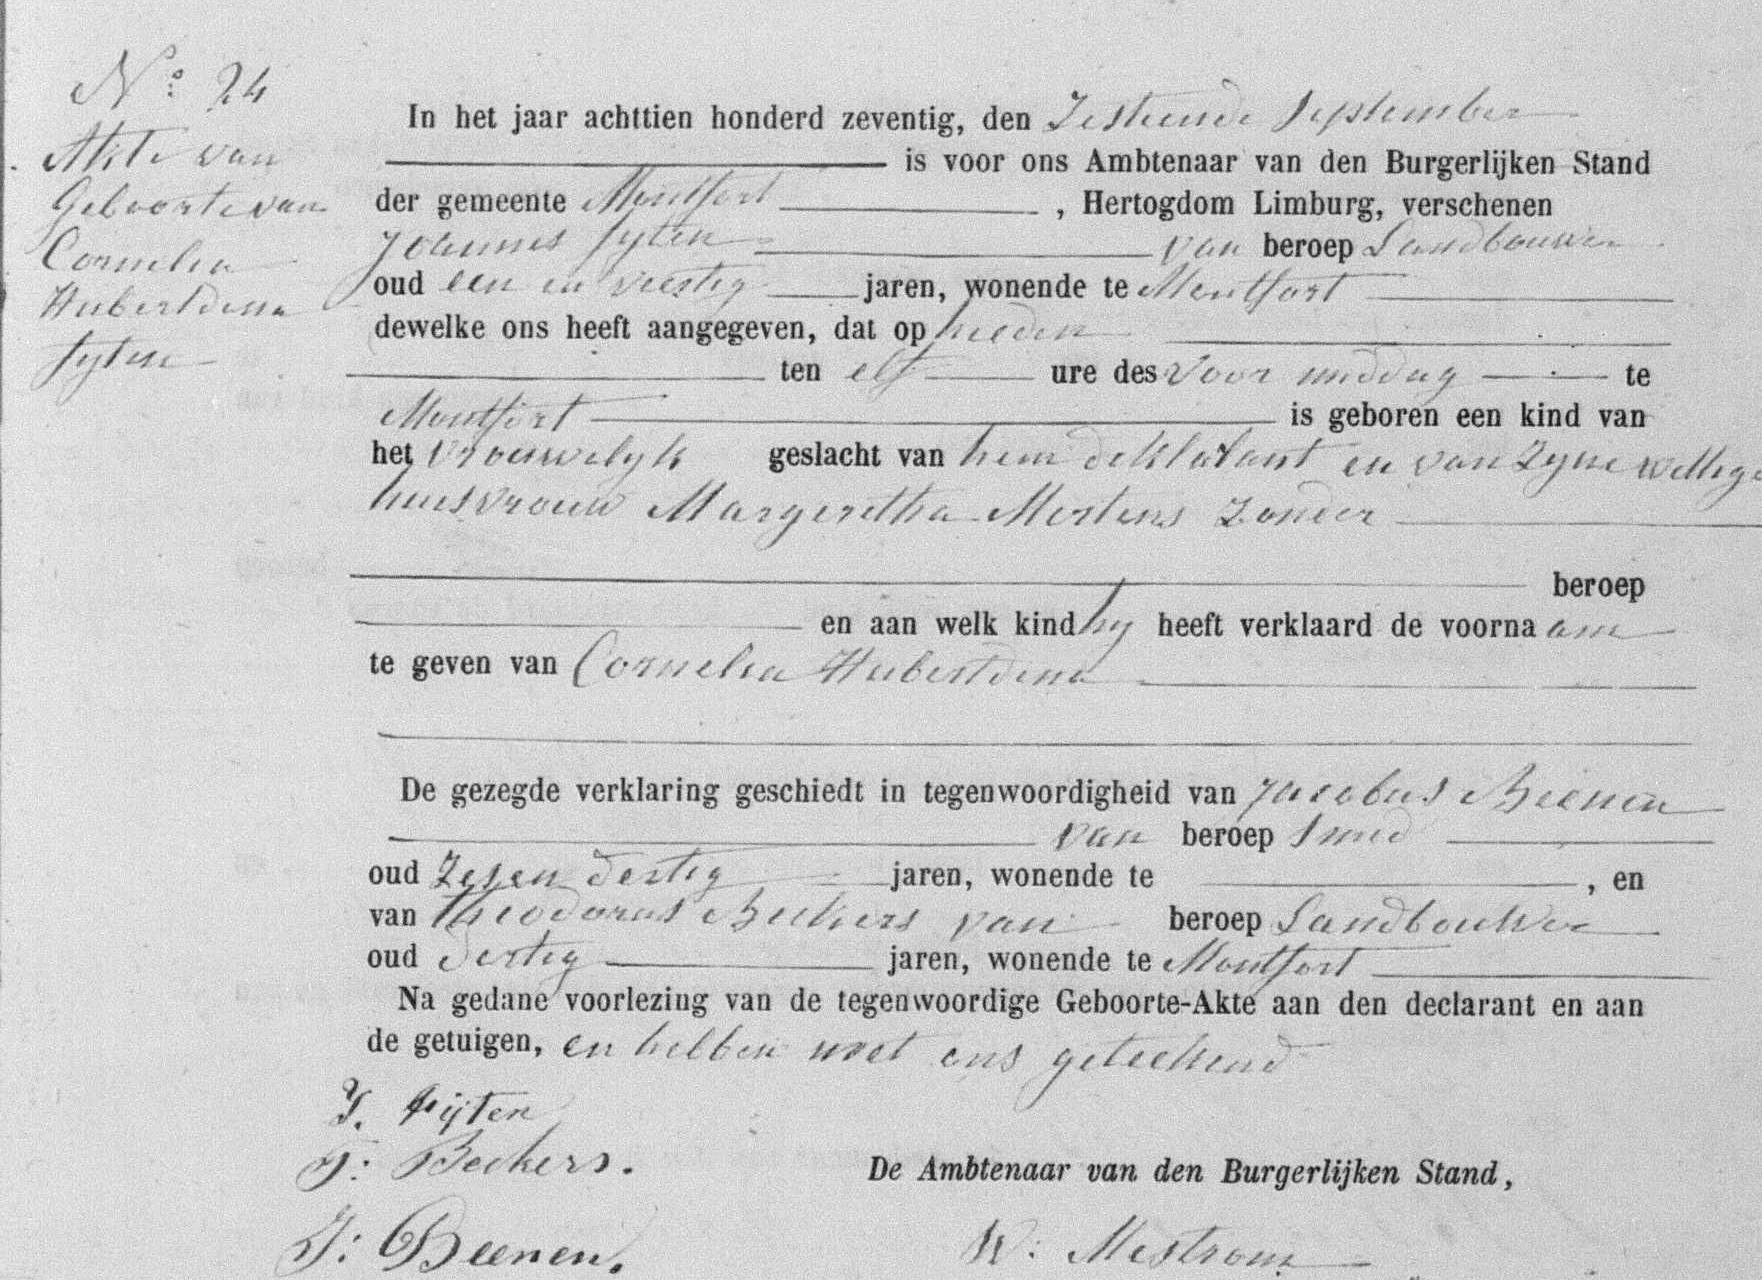 No: 24
Akte van
Geboorte van
Cornelia
Hubertdina
Fyten
In het jaar achttien honderd zeventig, den Zestiende September
is voor ons Ambtenaar van den Burgerlijken Stand
der gemeente Montfort, Hertogdom Limburg, verschenen
Joannes Fyten van beroep Landbouwer
oud een en veertig jaren, wonende te Montfort
dewelke ons heeft aangegeven, dat op heden
ten elf ure des voor middag te
Montfort is geboren een kind van
het vrouwelyk geslacht van hem deklarant en van zyne wettige
huisvrouw Margeretha Mertens zonder
beroep
en aan welk kind hy heeft verklaard de voorna am
te geven van Cornelia Hubertdina
De gezegde verklaring geschiedt in tegenwoordigheid van Jacobus Beenen
van beroep Smid
oud Zes en dertig jaren, wonende te , en
van Theodorus Beckers van beroep Landbouwer
oud dertig jaren, wonende te Montfort
Na gedane voorlezing van de tegenwoordige Geboorte-Akte aan den declarant en aan
de getuigen, en hebben met ons geteekend
J. Fijten
T: Beckers.
De Ambtenaar van den Burgerlijken Stand,
J: Beenen.
W: Mestrom